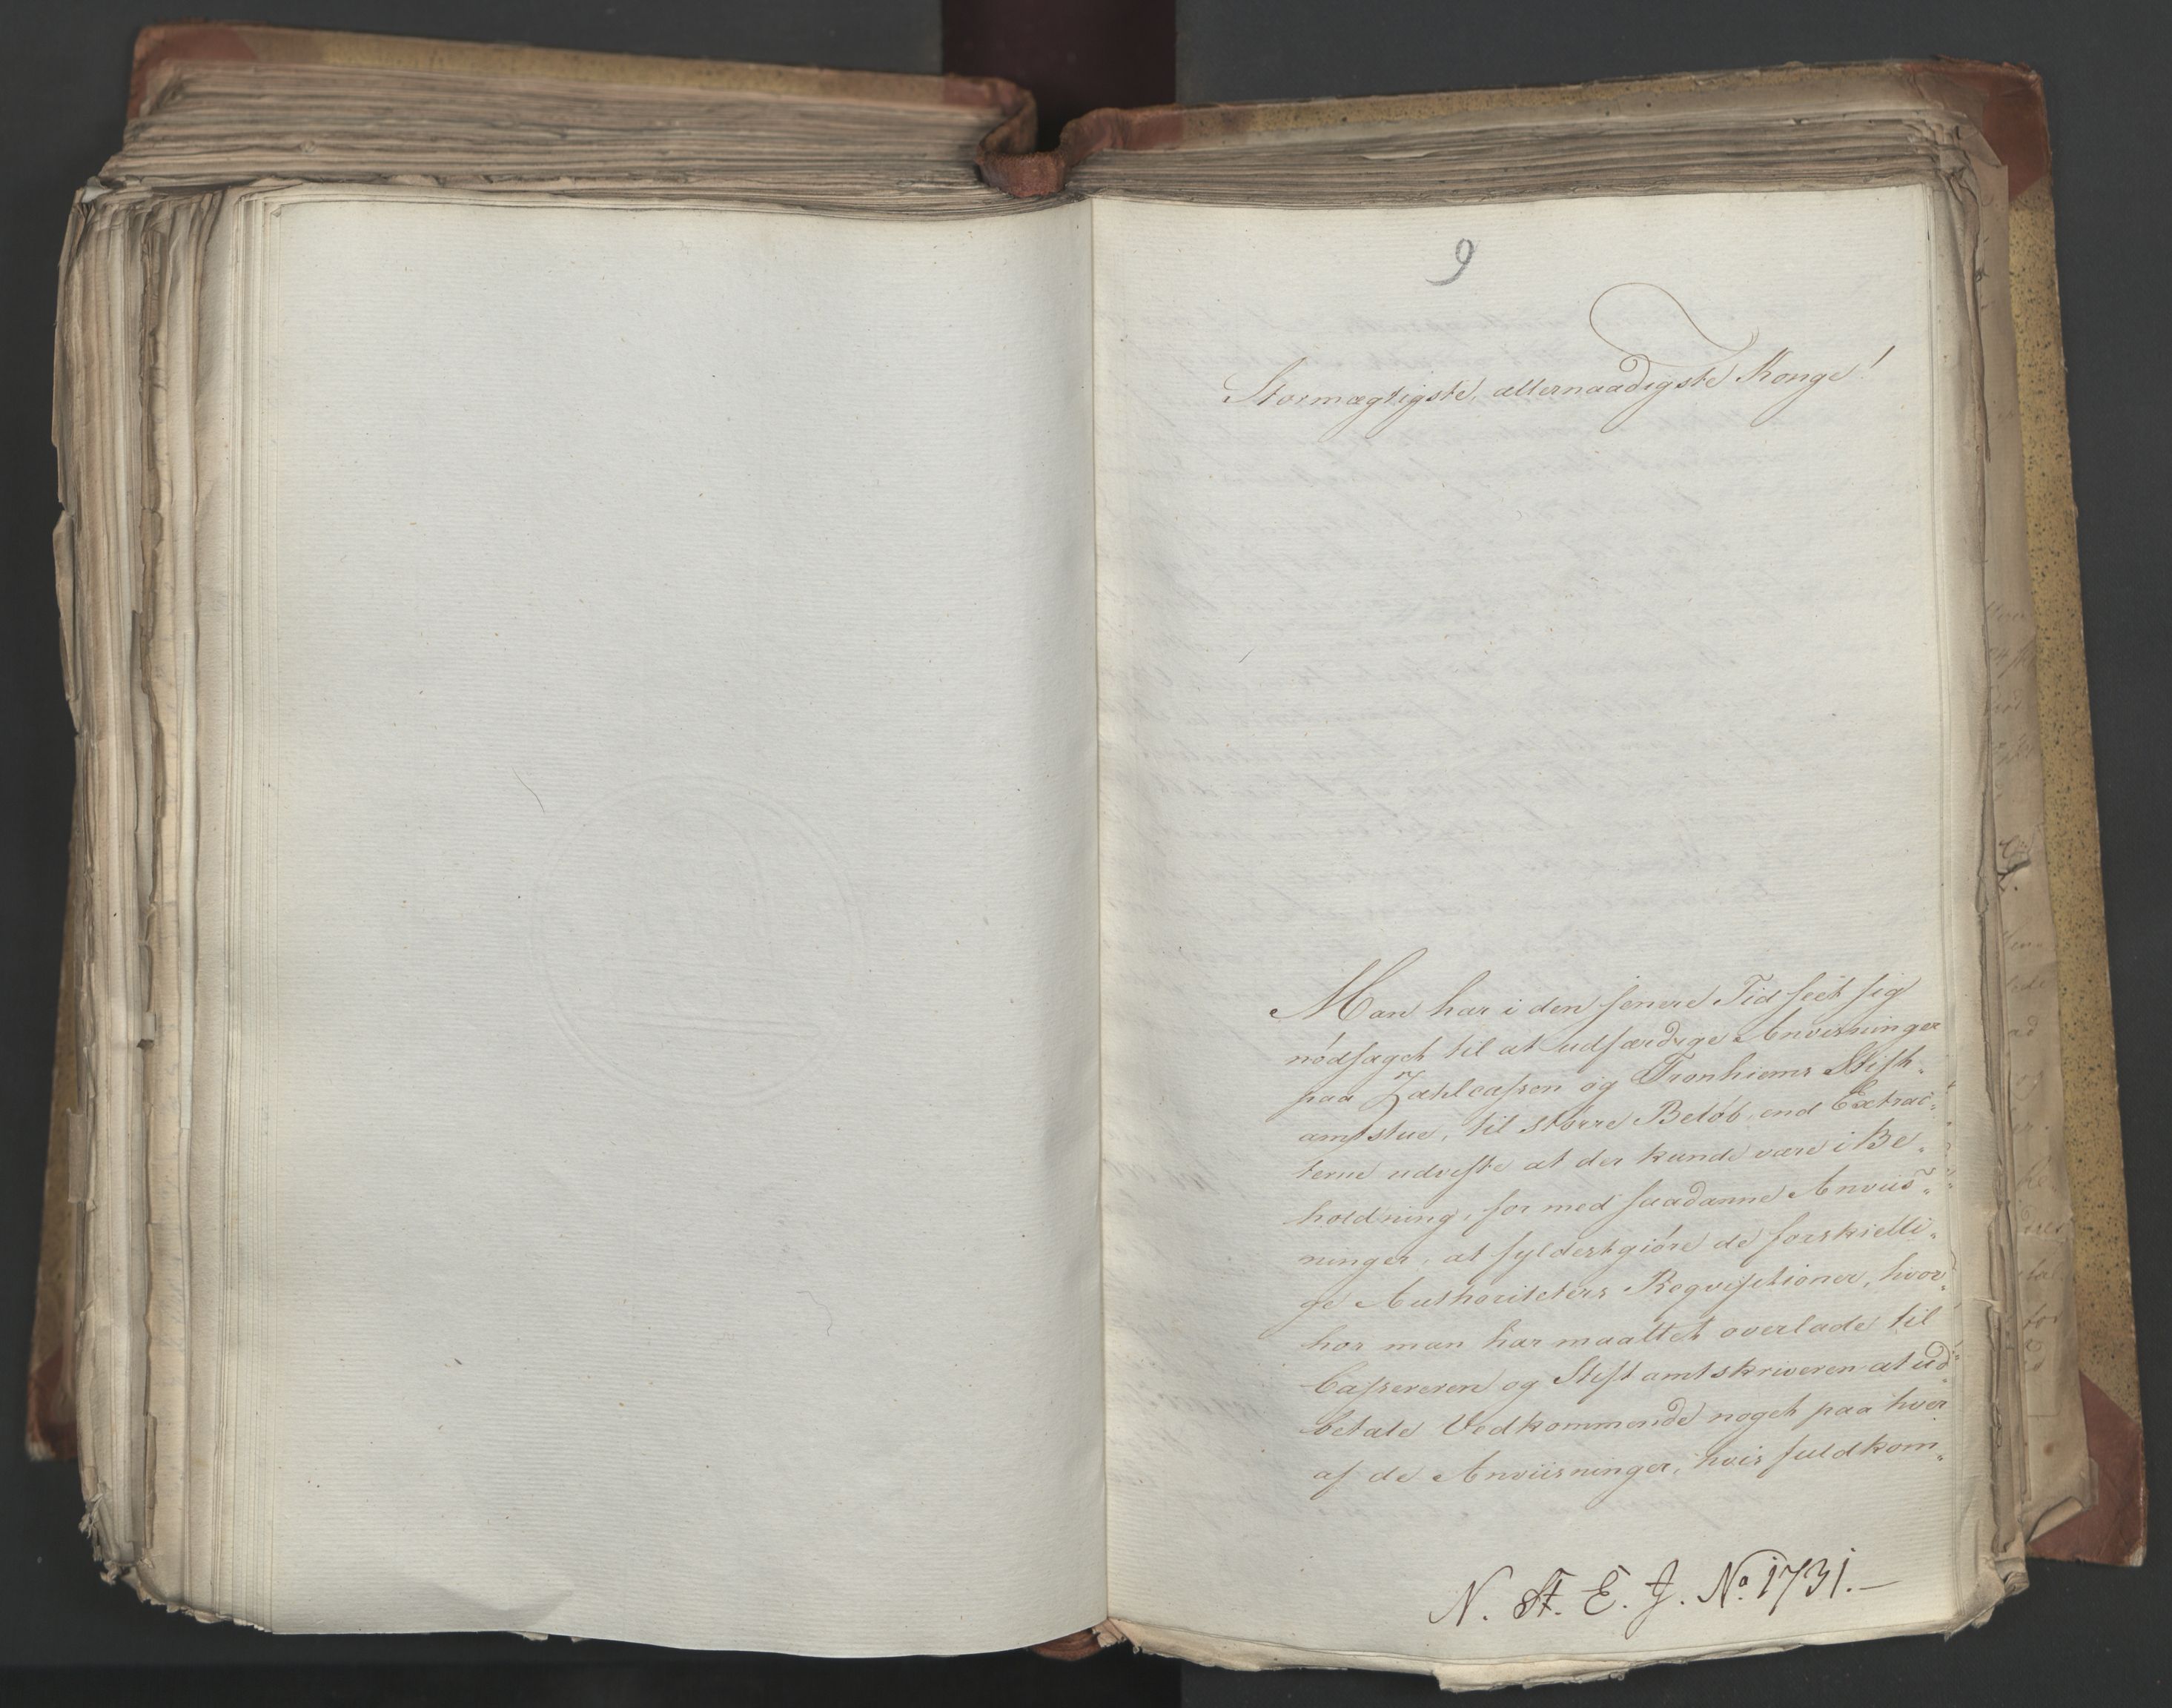 9
Stormægtigste, allernaadigste Konge!
Man har i den senere Tid seet sig
nødsaget til at udfærdige Anviisninger
paa Zahlcassen og Tronhiems Stift-
amtstue, til større Beløb, end Extrac-
terne udviste at der kunde være i Be-
holdning, for med saadanne Anviis-
ninger, at fyldestgiøre de forskielli-
ge Authoriteters Requisitioner, hvor-
hos man har maattet overlade til
Cassereren og Stiftamtskriveren at ud-
betale Vedkommende noget paa hver
af de Anviisninger, hvis fuldkom-
N. St. E. J. No. 1731.—